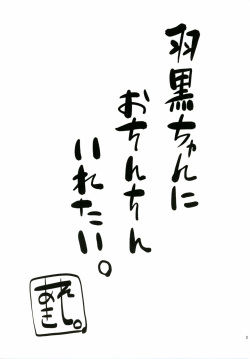 羽黒ちゃんに
おちんちん
いれたい。